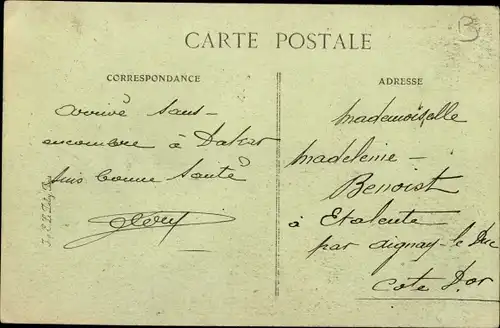 B
CARTE POSTALE
CORRESPONDANCE
ADRESSE
arrivé sans-
encombre à Dakar
suis bonne santé
Mademoiselle
Madeleine -
Benoist
à Etalente
par Aignay-le Duc
Cote D'or